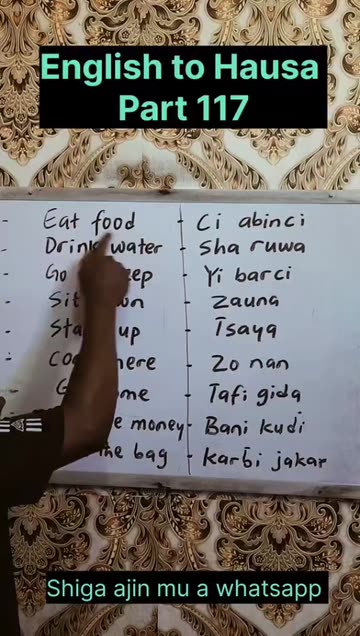 English to Hausa
Part 117
- Eat food - Ci abinci
- Drink water - Sha ruwa
- Go ep - Yi barci
- Sit wn - Zauna
- Sta up - Tsaya
- Co here - Zo nan
- G me - Tafi gida
e money - Bani kudi
he bag - karbi jakar
Shiga ajin mu a whatsapp